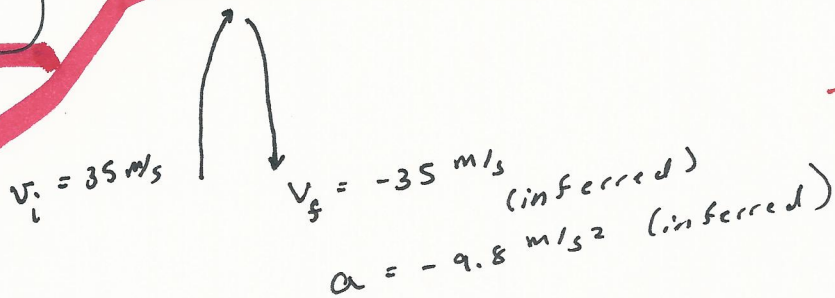 v_i = 35 m/s
v_f = -35 m/s (inferred)
a = -9.8 m/s² (inferred)